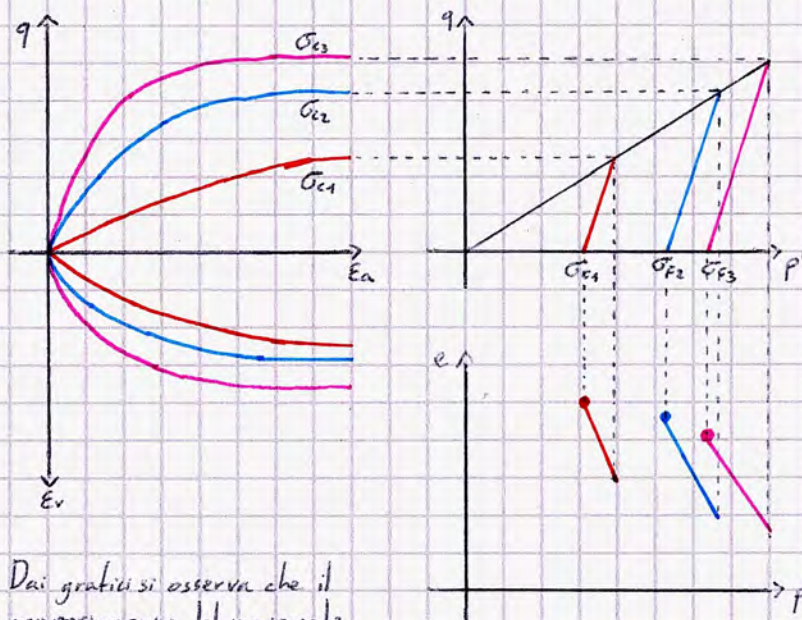 q
σc3
σc2
σc1
εa
εv
q
σc1
σc2
σc3
p'
e
p'
Dai grafici si osserva che il